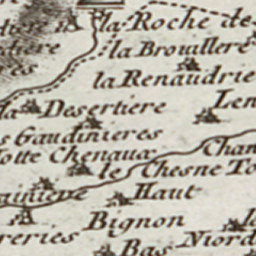 la Roche de
la Brouillere
la Renaudrie
la Desertiere
Gaudinieres
otte Chenaux
Chan
le Chesne To
Haut
Bignon
reries
Bas Niord